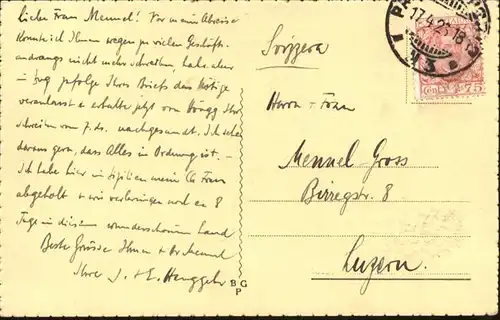 Liebe Frau Mennel! Vor meiner Abreise
konnte ich Ihnen wegen zu vielen Geschäfts-
andrangs nicht mehr schreiben, habe aber
in Zug zufolge Ihres Briefs das Nötige
veranlasst & erhalte jetzt von Höngg Ihr
Schreiben vom 7. ds. nachgesandt. Ich sehe
daraus gern, dass Alles in Ordnung ist. –
Ich habe hier in Sizilien meine Frau
abgeholt + wir verbringen noch ca 8
Tage in diesem wunderschönen Land
Beste Grüsse Ihnen + Hr Mennel
Ihre J. + E. Henggeler
Svizzera
Herrn + Frau
Mennel-Gross
Birregstr. 8
Luzern.
17.4.25.18
Cent. 75
B G
P